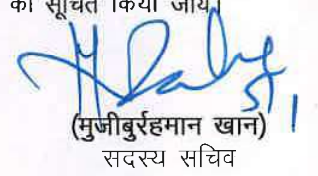 को सूचित किया जाय।
(मुजीबुर्रहमान खान)
सदस्य सचिव